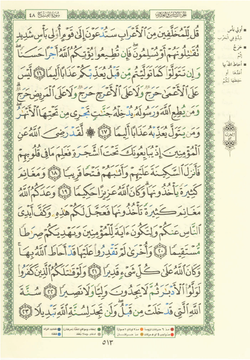 قُل لِّلْمُخَلَّفِينَ مِنَ ٱلْأَعْرَابِ سَتُدْعَوْنَ إِلَىٰ قَوْمٍ أُو۟لِى بَأْسٍ شَدِيدٍ
تُقَٰتِلُونَهُمْ أَوْ يُسْلِمُونَ ۖ فَإِن تُطِيعُوا۟ يُؤْتِكُمُ ٱللَّهُ أَجْرًا حَسَنًا ۖ
وَإِن تَتَوَلَّوْا۟ كَمَا تَوَلَّيْتُم مِّن قَبْلُ يُعَذِّبْكُمْ عَذَابًا أَلِيمًا ١٦ لَّيْسَ
عَلَى ٱلْأَعْمَىٰ حَرَجٌ وَلَا عَلَى ٱلْأَعْرَجِ حَرَجٌ وَلَا عَلَى ٱلْمَرِيضِ حَرَجٌ ۗ
وَمَن يُطِعِ ٱللَّهَ وَرَسُولَهُۥ يُدْخِلْهُ جَنَّٰتٍ تَجْرِى مِن تَحْتِهَا ٱلْأَنْهَٰرُ ۖ
وَمَن يَتَوَلَّ يُعَذِّبْهُ عَذَابًا أَلِيمًا ١٧ ۞ لَّقَدْ رَضِىَ ٱللَّهُ عَنِ
ٱلْمُؤْمِنِينَ إِذْ يُبَايِعُونَكَ تَحْتَ ٱلشَّجَرَةِ فَعَلِمَ مَا فِى قُلُوبِهِمْ
فَأَنزَلَ ٱلسَّكِينَةَ عَلَيْهِمْ وَأَثَٰبَهُمْ فَتْحًا قَرِيبًا ١٨ وَمَغَانِمَ
كَثِيرَةً يَأْخُذُونَهَا ۗ وَكَانَ ٱللَّهُ عَزِيزًا حَكِيمًا ١٩ وَعَدَكُمُ ٱللَّهُ
مَغَانِمَ كَثِيرَةً تَأْخُذُونَهَا فَعَجَّلَ لَكُمْ هَٰذِهِۦ وَكَفَّ أَيْدِىَ
ٱلنَّاسِ عَنكُمْ وَلِتَكُونَ ءَايَةً لِّلْمُؤْمِنِينَ وَيَهْدِيَكُمْ صِرَٰطًا
مُّسْتَقِيمًا ٢٠ وَأُخْرَىٰ لَمْ تَقْدِرُوا۟ عَلَيْهَا قَدْ أَحَاطَ ٱللَّهُ بِهَا ۚ
وَكَانَ ٱللَّهُ عَلَىٰ كُلِّ شَىْءٍ قَدِيرًا ٢١ وَلَوْ قَٰتَلَكُمُ ٱلَّذِينَ كَفَرُوا۟
لَوَلَّوُا۟ ٱلْأَدْبَٰرَ ثُمَّ لَا يَجِدُونَ وَلِيًّا وَلَا نَصِيرًا ٢٢ سُنَّةَ
ٱللَّهِ ٱلَّتِى قَدْ خَلَتْ مِن قَبْلُ ۖ وَلَن تَجِدَ لِسُنَّةِ ٱللَّهِ تَبْدِيلًا ٢٣
٥١٣